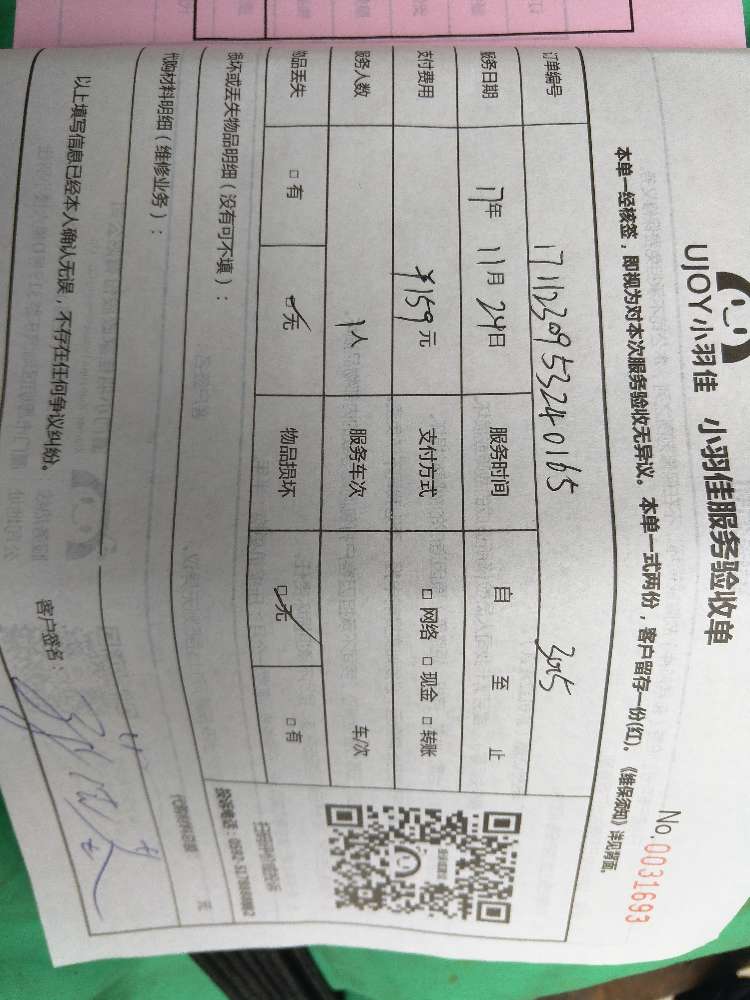 UJOY小羽佳 小羽佳服务验收单
No.0031693
本单一经核签，即视为对本次服务验收无异议。本单一式两份，客户留存一份(红)。《维保须知》详见背面。
订单编号 17112309533240165 3205
服务日期 17年 11月 24日 服务时间 自 至 止
支付费用 ¥159元 支付方式 □ 网络 □ 现金 □ 转账
服务人数 1人 服务车次 车/次
物品丢失 □ 有 ☑无 物品损坏 ☑无 □ 有
损坏或丢失物品明细（没有可不填）：
投诉电话：0592-5178888转2
代购材料明细（维修业务）：
元
以上填写信息已经本人确认无误，不存在任何争议纠纷。
客户签名：